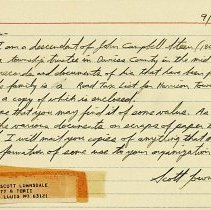 9/
I am a descendant of John Campbell Steen (18
township trustee in Daviess County in the mid
records and documents of his that have been p
family is a Road Tax List for Harrison Town
a copy of which is enclosed.
that you may find it of some value. As
the various documents on scraps of paper
I will mail you copies of anything that
formation of some use to your organization.
Scott Low
SCOTT LOWNSDALE
LOUIS MO 63121